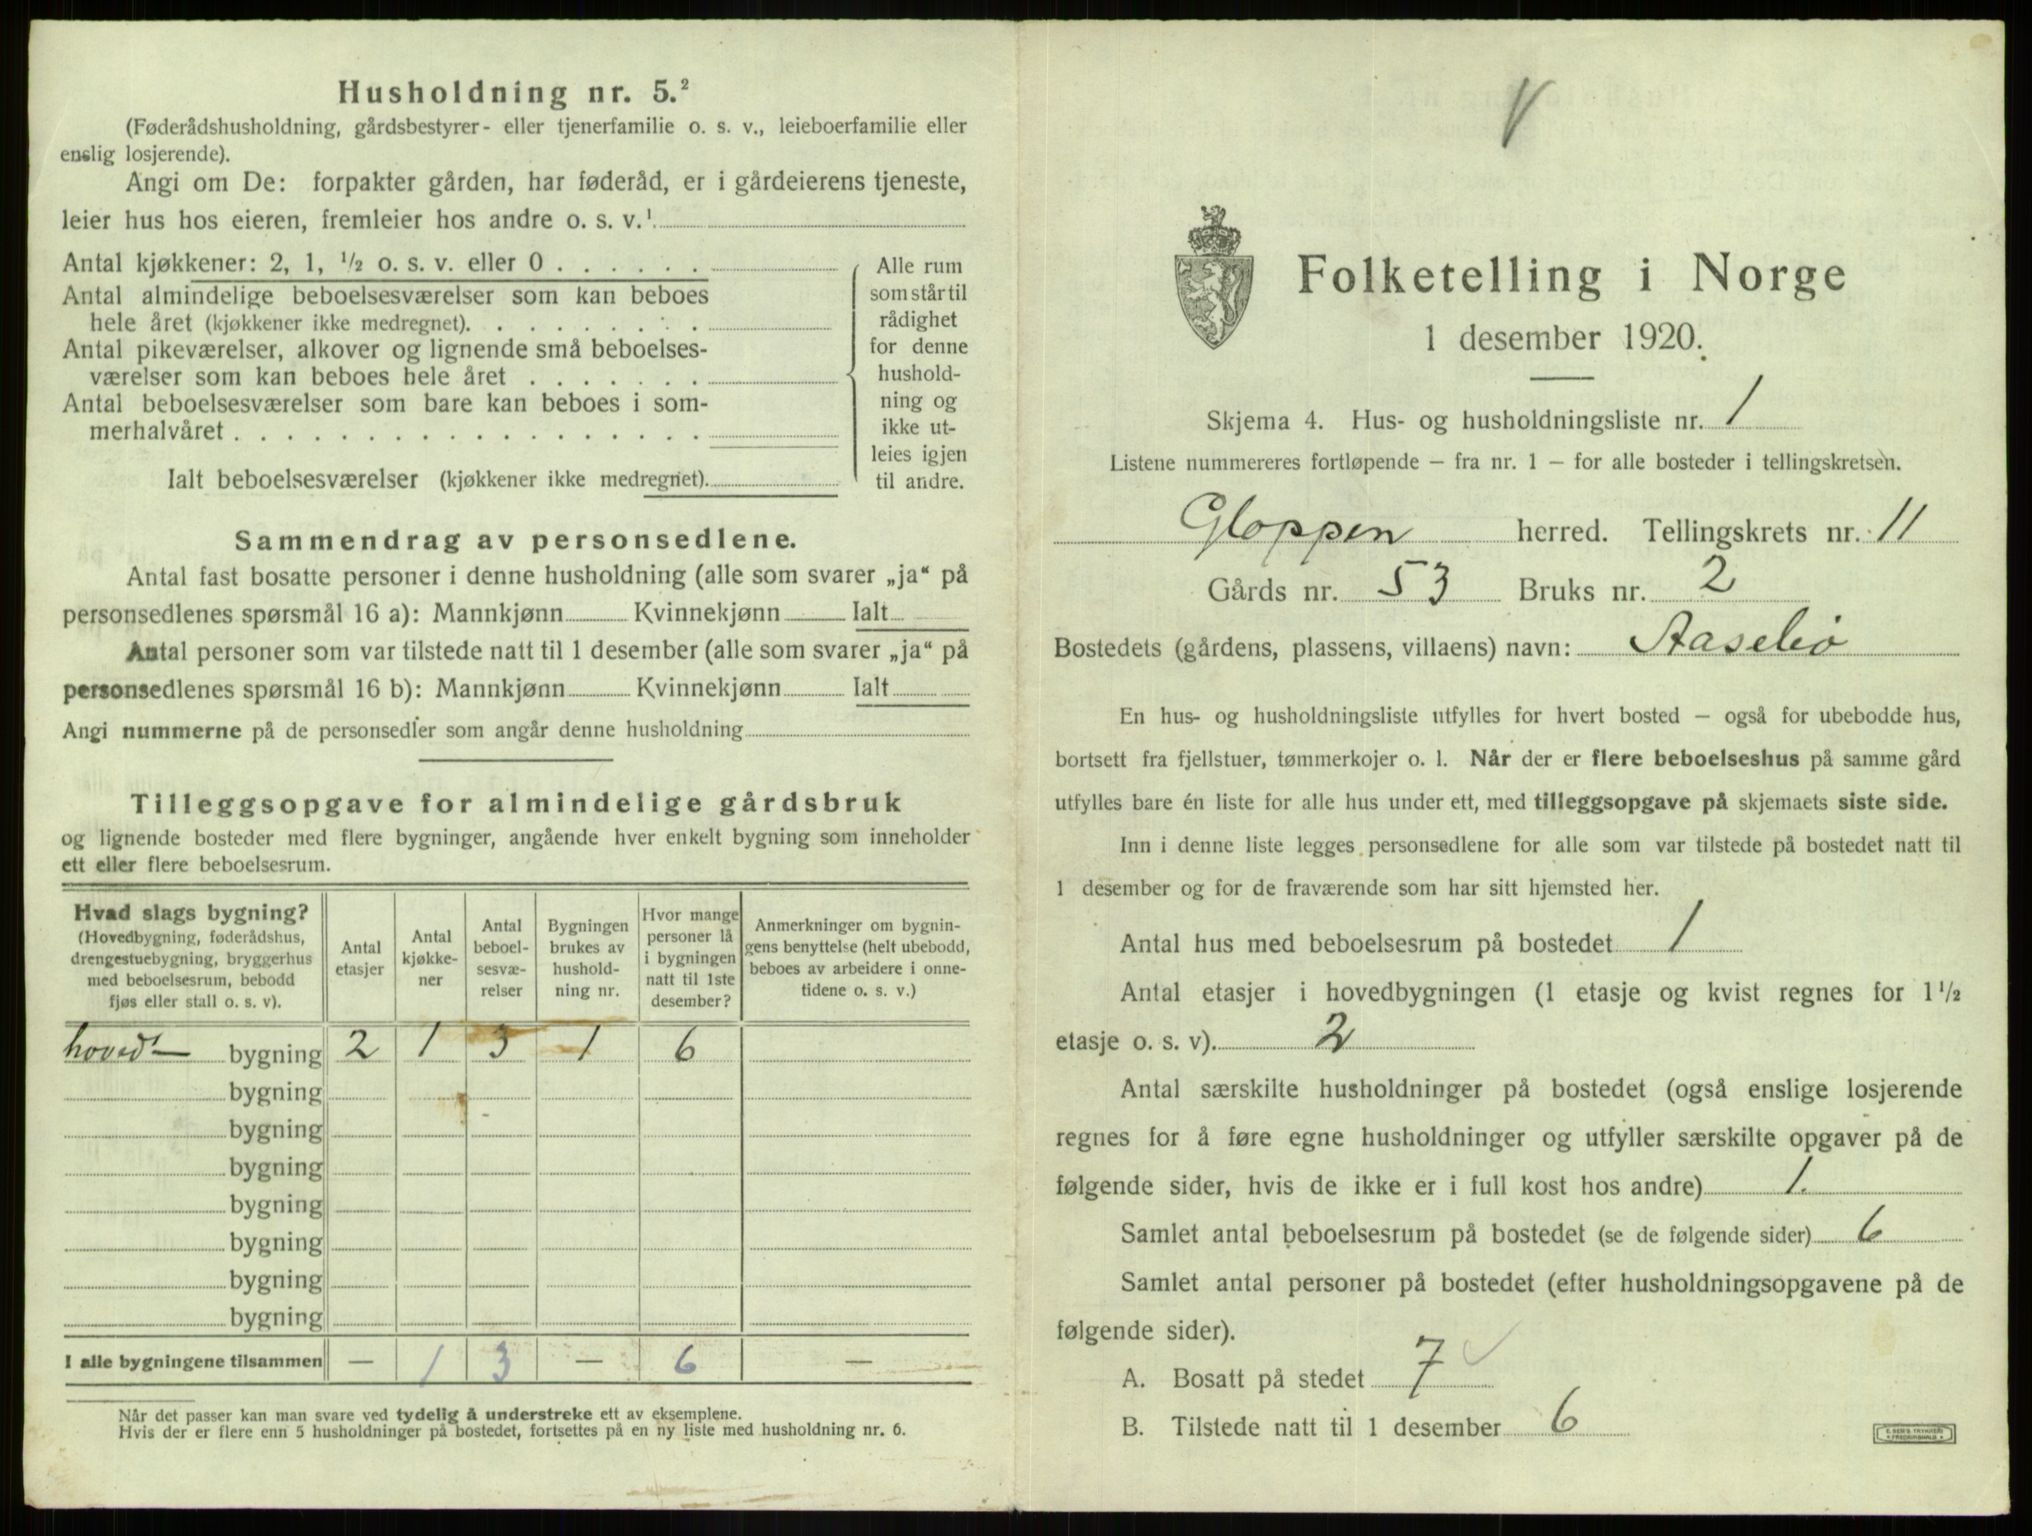 Husholdning nr. 5.²
(Føderådshusholdning, gårdsbestyrer- eller tjenerfamilie o. s. v., leieboerfamilie eller
enslig losjerende).
Angi om De: forpakter gården, har føderåd, er i gårdeierens tjeneste,
leier hus hos eieren, fremleier hos andre o. s. v.¹
Antal kjøkkener: 2, 1, ½ o. s. v. eller 0 . . . . . .
Antal almindelige beboelsesværelser som kan beboes
hele året (kjøkkener ikke medregnet). . . . . . . . .
Antal pikeværelser, alkover og lignende små beboelses-
værelser som kan beboes hele året . . . . . . .
Antal beboelsesværelser som bare kan beboes i som-
merhalvåret . . . . . . . . . . . . . . . . . .
Ialt beboelsesværelser (kjøkkener ikke medregnet).
Alle rum
som står til
rådighet
for denne
hushold-
ning og
ikke ut-
leies igjen
til andre.
Sammendrag av personsedlene.
Antal fast bosatte personer i denne husholdning (alle som svarer „ja“ på
personsedlenes spørsmål 16 a): Mannkjønn Kvinnekjønn Ialt
Antal personer som var tilstede natt til 1 desember (alle som svarer „ja“ på
personsedlenes spørsmål 16 b): Mannkjønn Kvinnekjønn Ialt
Angi nummerne på de personsedler som angår denne husholdning
Tilleggsopgave for almindelige gårdsbruk
og lignende bosteder med flere bygninger, angående hver enkelt bygning som inneholder
ett eller flere beboelsesrum.
Hvad slags bygning?
(Hovedbygning, føderådshus,
drengestuebygning, bryggerhus
med beboelsesrum, bebodd
fjøs eller stall o. s. v).
Antal
etasjer
Antal
kjøkke-
ner
Antal
beboel-
sesvæ-
relser
Bygningen
brukes av
hushold-
ning nr.
Hvor mange
personer lå
i bygningen
natt til 1ste
desember?
Anmerkninger om bygnin-
gens benyttelse (helt ubebodd,
beboes av arbeidere i onne-
tidene o. s. v.)
hoved- bygning 2 1 3 1 6
bygning
bygning
bygning
bygning
bygning
bygning
bygning
I alle bygningene tilsammen — 1 3 — 6 —
Når det passer kan man svare ved tydelig å understreke ett av eksemplene.
Hvis der er flere enn 5 husholdninger på bostedet, fortsettes på en ny liste med husholdning nr. 6.
Folketelling i Norge
1 desember 1920.
Skjema 4. Hus- og husholdningsliste nr. 1
Listene nummereres fortløpende – fra nr. 1 – for alle bosteder i tellingskretsen.
Gloppen herred. Tellingskrets nr. 11
Gårds nr. 53 Bruks nr. 2
Bostedets (gårdens, plassens, villaens) navn: Aasebø
En hus- og husholdningsliste utfylles for hvert bosted – også for ubebodde hus,
bortsett fra fjellstuer, tømmerkojer o. l. Når der er flere beboelseshus på samme gård
utfylles bare én liste for alle hus under ett, med tilleggsopgave på skjemaets siste side.
Inn i denne liste legges personsedlene for alle som var tilstede på bostedet natt til
1 desember og for de fraværende som har sitt hjemsted her.
Antal hus med beboelsesrum på bostedet 1
Antal etasjer i hovedbygningen (1 etasje og kvist regnes for 1½
etasje o. s. v). 2
Antal særskilte husholdninger på bostedet (også enslige losjerende
regnes for å føre egne husholdninger og utfyller særskilte opgaver på de
følgende sider, hvis de ikke er i full kost hos andre) 1.
Samlet antal beboelsesrum på bostedet (se de følgende sider) 6
Samlet antal personer på bostedet (efter husholdningsopgavene på de
følgende sider).
A. Bosatt på stedet 7
B. Tilstede natt til 1 desember 6
E. SEM'S TRYKKERI
FREDRIKSHALD